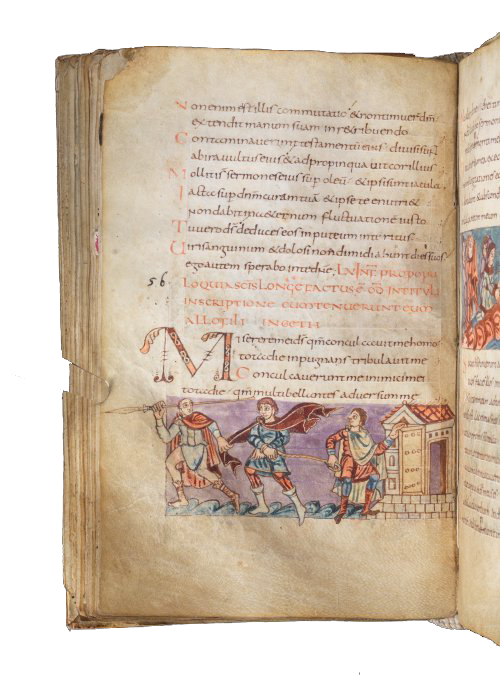 Non enim est illis commutatio & non timuer dm̄
extendit manum suam in retribuendo
Contaminauerunt testamentum eius diuisi sunt
abira uultus eius & adpropinquauit cor illius
Molliti s sermones eius sup oleū & ipsi sunt iacula
Iacta sup dnm curam tuā & ipse te enutri&
Non dabit in &ernum fluctuatione iusto
Tu uero ds deduces eos in puteum interitus
Uiri sanguinum & dolosi non dimidiabunt dies suos
ego autem sperabo inte dnē. LV INF PROPOPU
56
LO QUI A SCIS LONGE FACTUS Ē DD IN TITULI
INSCRIPTIONE CUM TENUERUNT EUM
ALLOFILI IN GETH
Miserere mei ds qm̄ conculcauit me homo
tota die inpugnans tribulauit me
Conculcauerunt me inimici mei
tota die qm̄ multi bellantes aduersum me